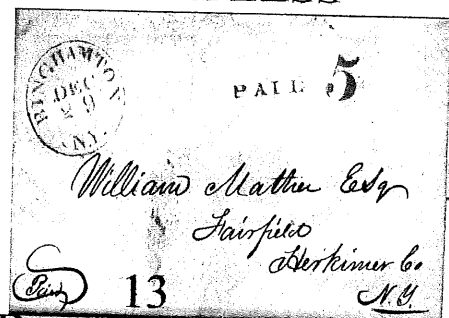 BINGHAMTON
DEC
29
N.Y.
PAID 5
William Mather Esq
Fairfield
Herkimer Co
N.Y.
Paid
13